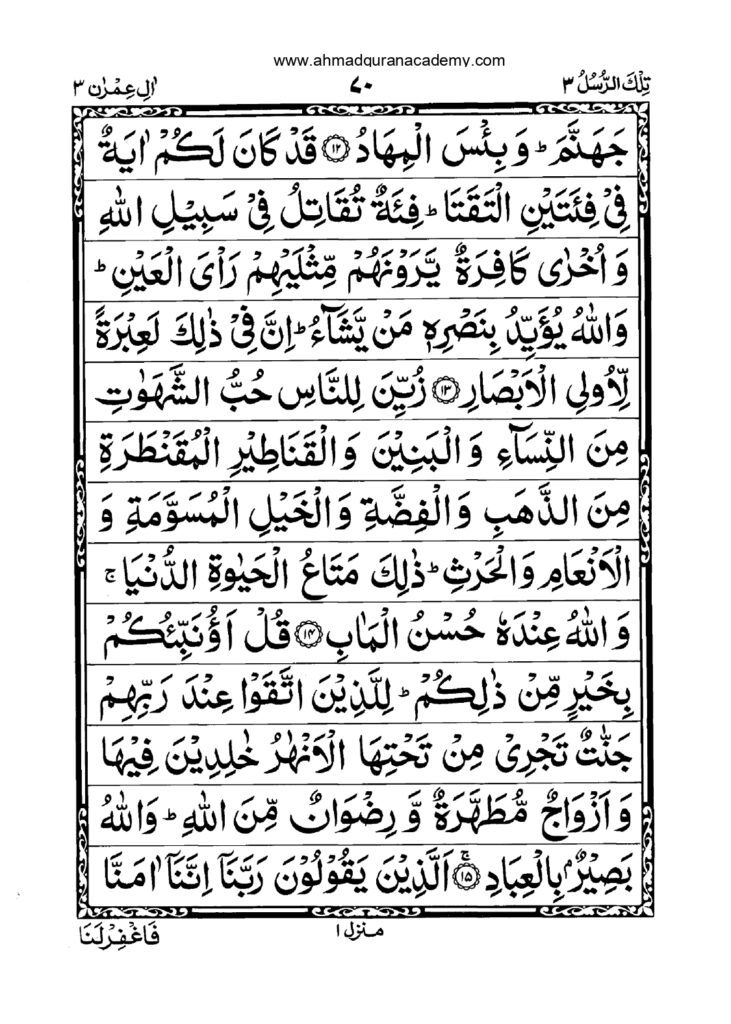 www.ahmadquranacademy.com
تِلْكَ الرُّسُلُ ٣ ٧٠ اٰلِ عِمْرٰن ٣
جَهَنَّمَ ؕ وَ بِئْسَ الْمِهَادُ ۝١٢ قَدْ كَانَ لَكُمْ اٰيَةٌ
فِیْ فِئَتَيْنِ الْتَقَتَا ؕ فِئَةٌ تُقَاتِلُ فِیْ سَبِيْلِ اللّٰهِ
وَ اُخْرٰى كَافِرَةٌ يَّرَوْنَهُمْ مِّثْلَيْهِمْ رَاْیَ الْعَيْنِ ؕ
وَاللّٰهُ يُؤَيِّدُ بِنَصْرِهٖ مَنْ يَّشَآءُ ؕ اِنَّ فِیْ ذٰلِكَ لَعِبْرَةً
لِّاُولِی الْاَبْصَارِ ۝١٣ زُيِّنَ لِلنَّاسِ حُبُّ الشَّهَوٰتِ
مِنَ النِّسَآءِ وَ الْبَنِيْنَ وَ الْقَنَاطِيْرِ الْمُقَنْطَرَةِ
مِنَ الذَّهَبِ وَ الْفِضَّةِ وَ الْخَيْلِ الْمُسَوَّمَةِ وَ
الْاَنْعَامِ وَ الْحَرْثِ ؕ ذٰلِكَ مَتَاعُ الْحَيٰوةِ الدُّنْيَا ۚ
وَ اللّٰهُ عِنْدَهٗ حُسْنُ الْمَاٰبِ ۝١٤ قُلْ اَؤُنَبِّئُكُمْ
بِخَيْرٍ مِّنْ ذٰلِكُمْ ؕ لِلَّذِيْنَ اتَّقَوْا عِنْدَ رَبِّهِمْ
جَنّٰتٌ تَجْرِیْ مِنْ تَحْتِهَا الْاَنْهٰرُ خٰلِدِيْنَ فِيْهَا
وَ اَزْوَاجٌ مُّطَهَّرَةٌ وَّ رِضْوَانٌ مِّنَ اللّٰهِ ؕ وَاللّٰهُ
بَصِيْرٌۢ بِالْعِبَادِ ۝١٥ۚ اَلَّذِيْنَ يَقُوْلُوْنَ رَبَّنَاۤ اِنَّنَاۤ اٰمَنَّا
منزل ١ فَاغْفِرْ لَنَا